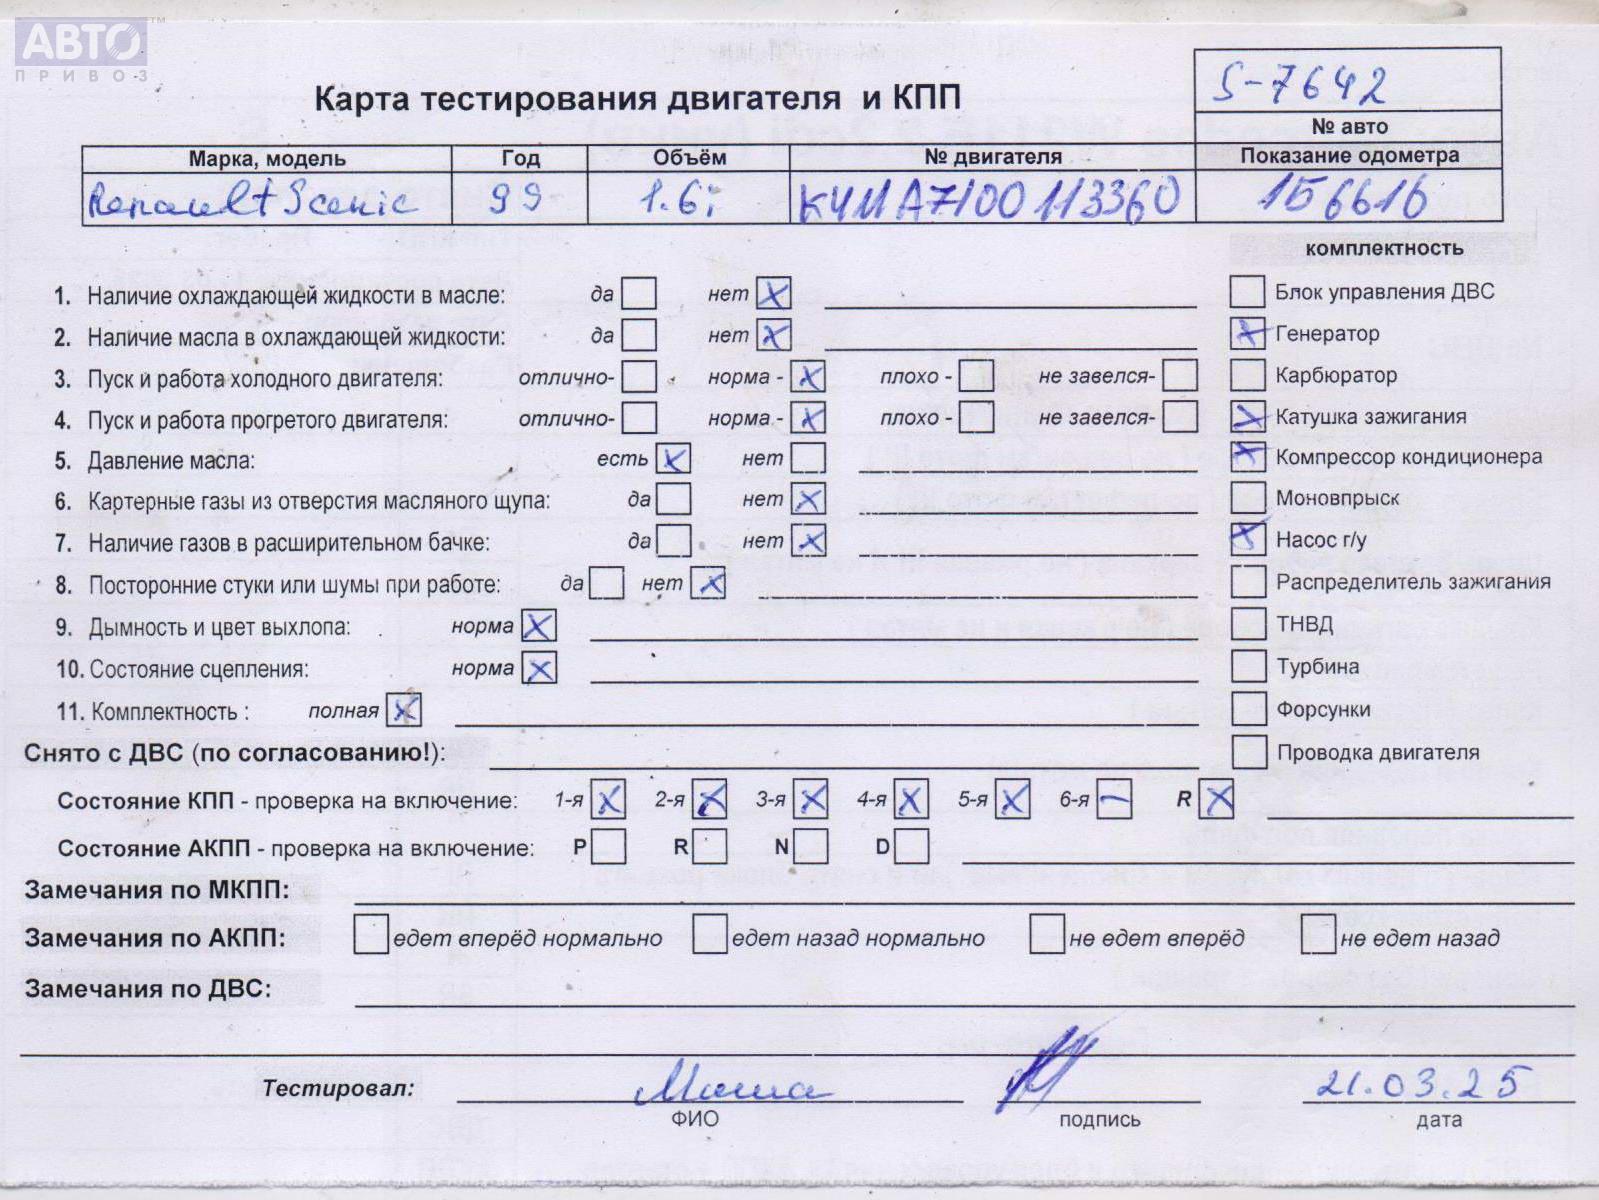 АВТО™
ПРИВОЗ
S-7642
Карта тестирования двигателя и КПП
№ авто
Марка, модель Год Объём № двигателя Показание одометра
Renault Scenic 99 1.6i K4MA7100113360 156616
комплектность
1. Наличие охлаждающей жидкости в масле: да нет X
Блок управления ДВС
2. Наличие масла в охлаждающей жидкости: да нет X
X Генератор
3. Пуск и работа холодного двигателя: отлично- норма - X плохо - не завелся-
Карбюратор
4. Пуск и работа прогретого двигателя: отлично- норма - X плохо - не завелся-
X Катушка зажигания
5. Давление масла: есть X нет
X Компрессор кондиционера
6. Картерные газы из отверстия масляного щупа: да нет X
Моновпрыск
7. Наличие газов в расширительном бачке: да нет X
X Насос г/у
8. Посторонние стуки или шумы при работе: да нет X
Распределитель зажигания
9. Дымность и цвет выхлопа: норма X
ТНВД
10. Состояние сцепления: норма X
Турбина
11. Комплектность : полная X
Форсунки
Снято с ДВС (по согласованию!):
Проводка двигателя
Состояние КПП - проверка на включение: 1-я X 2-я X 3-я X 4-я X 5-я X 6-я — R X
Состояние АКПП - проверка на включение: P R N D
Замечания по МКПП:
Замечания по АКПП: едет вперёд нормально едет назад нормально не едет вперёд не едет назад
Замечания по ДВС:
Тестировал: Миша 21.03.25
ФИО подпись дата